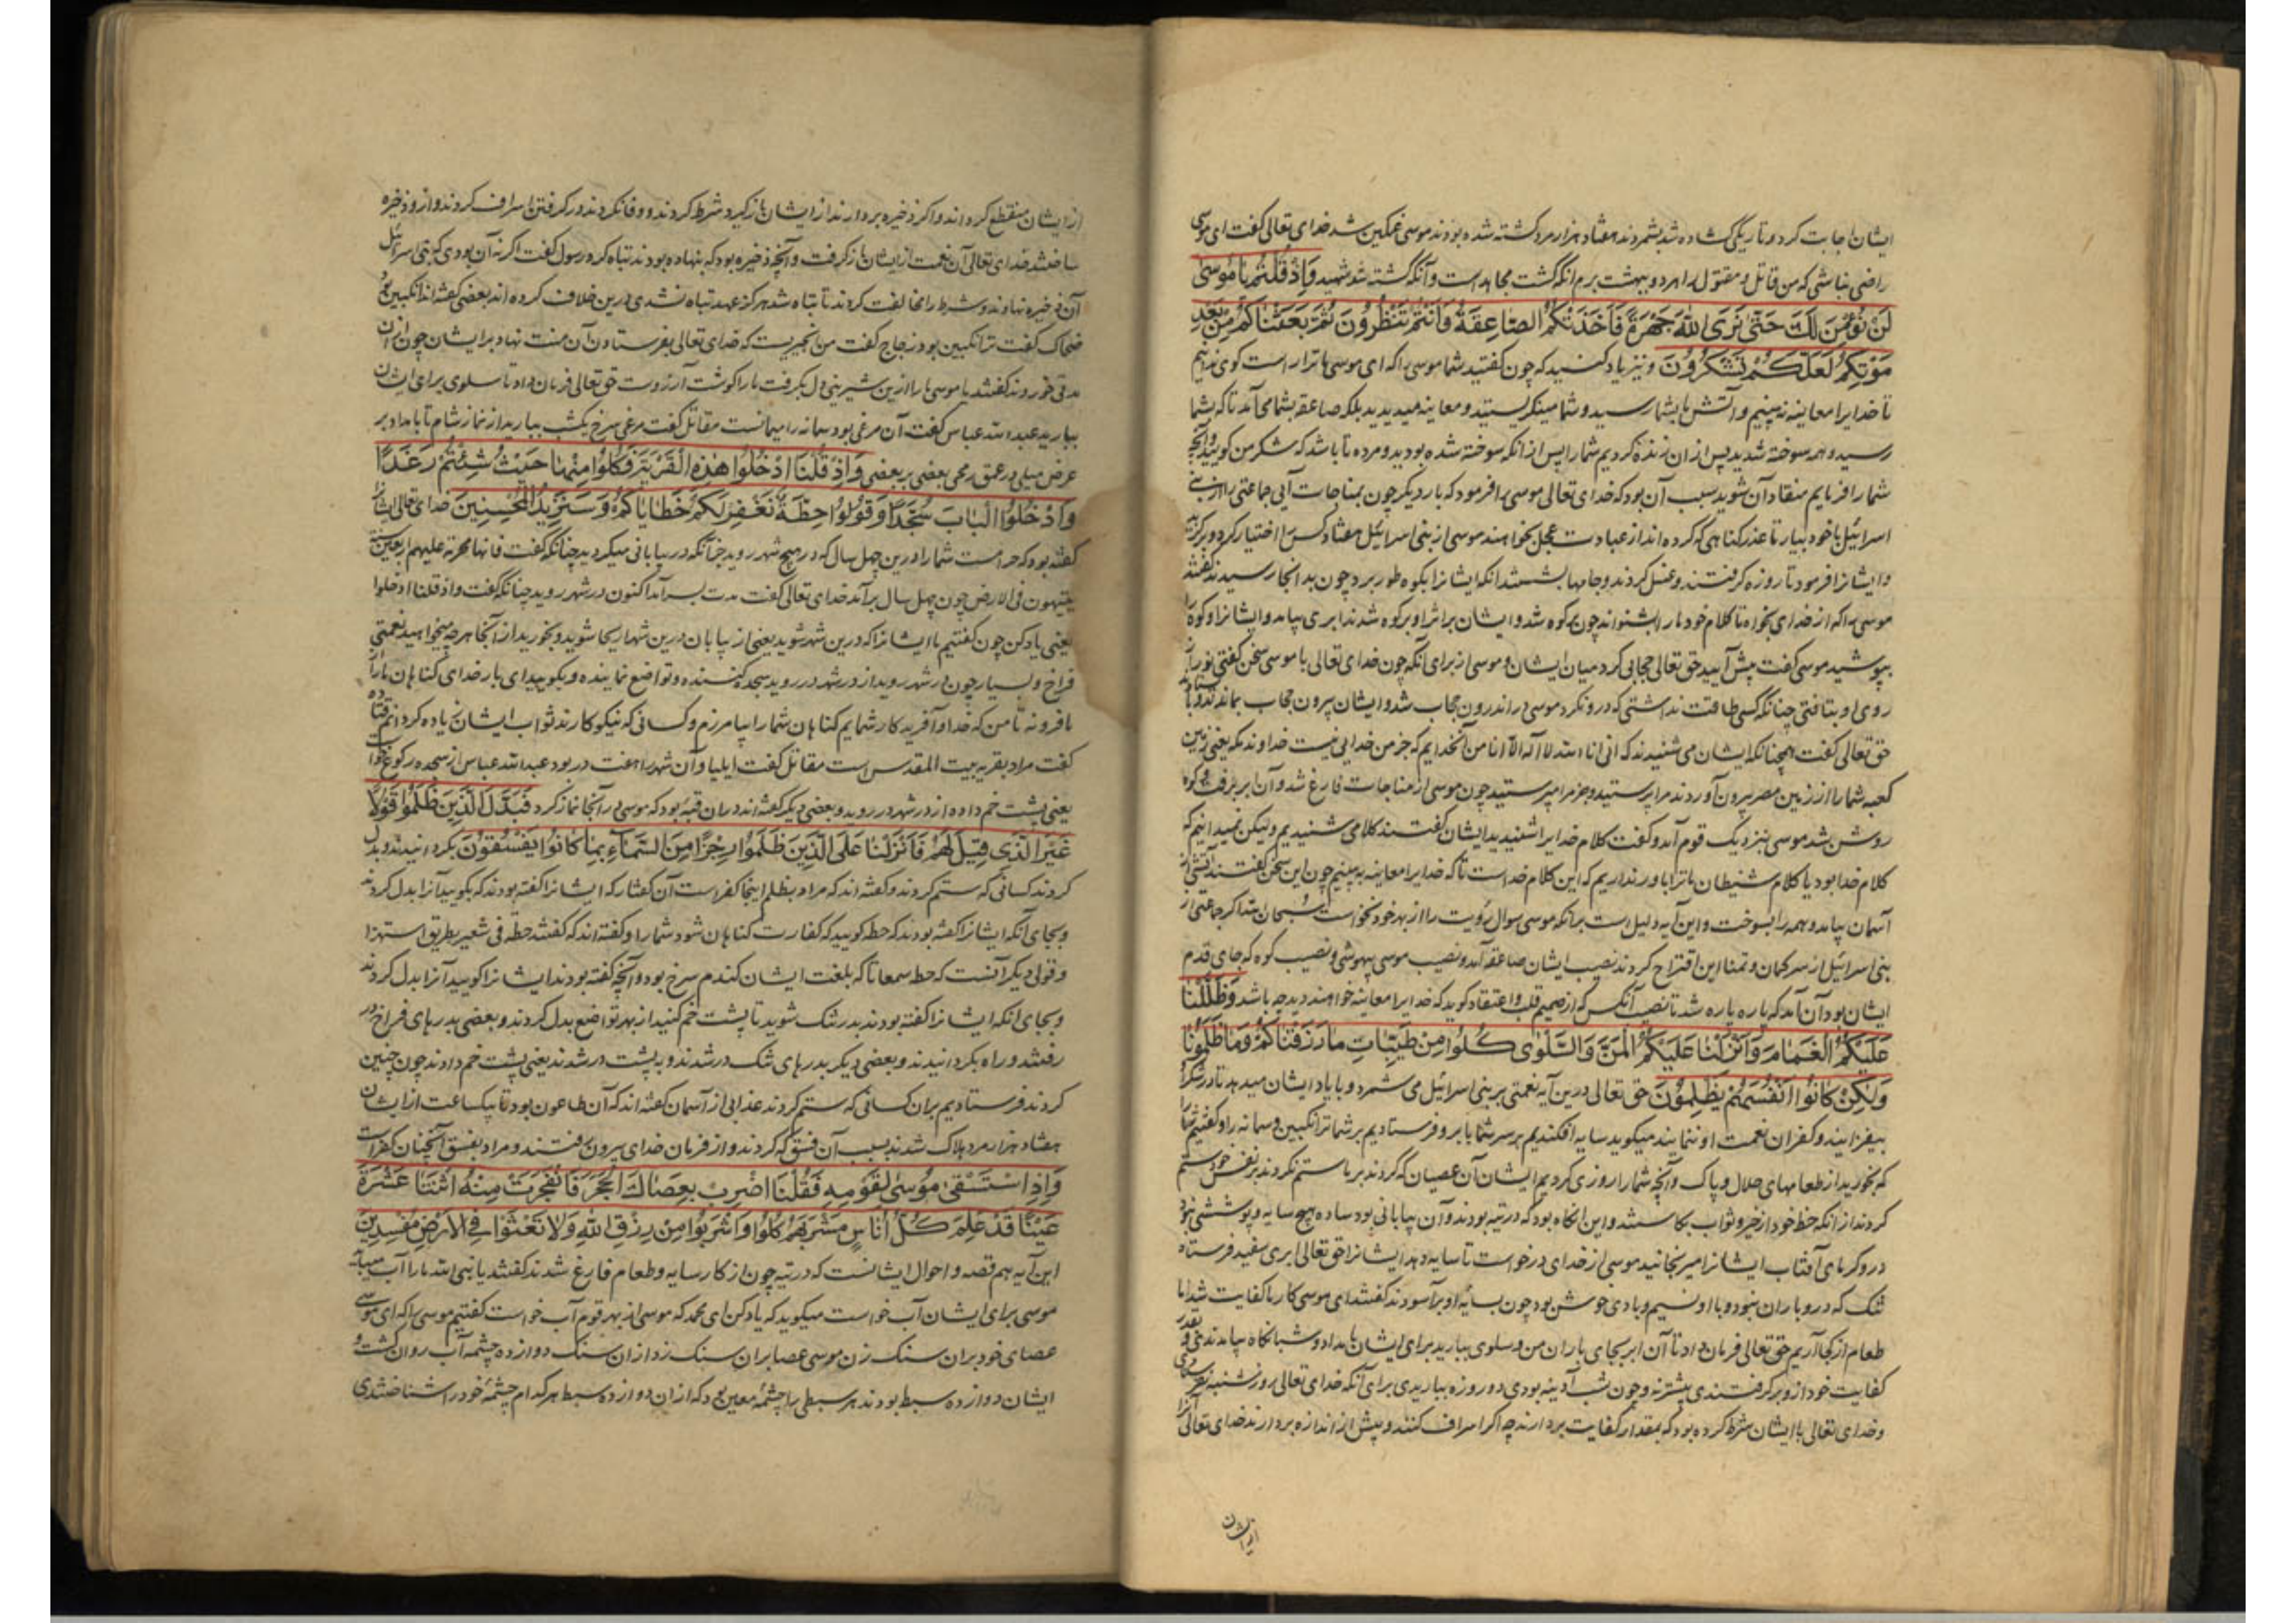 ایشان اجابت کرد و تاریکی گشاده شد بشمردند هفتاد هزار مرد کشته شده بودند موسی غمگین شد خدای تعالی گفت ای موسی
راضی نباشی که من قاتل و مقتول را هر دو ببهشت برم آنکه کشت مجاهد است و آنکه کشته شد شهید وَاِذْ قُلْتُمْ يَا مُوسٰى
لَنْ نُؤْمِنَ لَكَ حَتّٰى نَرَى اللهَ جَهْرَةً فَاَخَذَتْكُمُ الصَّاعِقَةُ وَاَنْتُمْ تَنْظُرُونَ ثُمَّ بَعَثْنَاكُمْ مِنْ بَعْدِ
مَوْتِكُمْ لَعَلَّكُمْ تَشْكُرُونَ و نیز یاد کنید که چون گفتید شما موسی را که ای موسی ما ترا راست گوی ندانیم
تا خدایرا معاینه نه بینیم و آتش بشما رسید و شما مینگریستید و معاینه میدیدید بلکه صاعقه بشما می آمد تا که بشما
رسید و همه سوخته شدید پس از ان زنده کردیم شما را پس از انکه سوخته شده بودید و مرده تا باشد که شکر من گویید و آنچه
شما را فرمایم منقاد آن شوید سبب آن بود که خدای تعالی موسی را فرمود که بار دیگر چون بمناجات آیی جماعتی را از بنی
اسرائیل با خود بیار تا عذر گناهی که کرده اند از عبادت عجل بخواهند موسی از بنی اسرائیل هفتاد کس را اختیار کرد و برگزید
و ایشانرا فرمود تا روزه گرفتند و غسل کردند و جامها بشستند انکه ایشانرا بکوه طور برد چون بدانجا رسیدند گفتند
موسی را که از خدای بخواه تا کلام خود ما را بشنواند چون بر کوه شد و ایشان بر اثر او بر کوه شدند ابری بیامد و ایشانرا و کوه را
بپوشید موسی گفت پیش آیید حق تعالی حجابی کرد میان ایشان و موسی از برای آنکه چون خدای تعالی با موسی سخن گفتی نور از
روی او بتافتی چنانکه کسی طاقت نداشتی که درو نگرد موسی در اندرون حجاب شد و ایشان بیرون حجاب بماندند
حق تعالی گفت همچنانکه ایشان می شنیدند که انی انا الله لا اله الا انا من آنخدایم که جز من خدایی نیست خداوند مکه یعنی زمین
کعبه شما را از زمین مصر بیرون آوردند مرا پرستید و جز مرا مپرستید چون موسی از مناجات فارغ شد و آن ابر برفت و کوه
روشن شد موسی بنزدیک قوم آمد و گفت کلام خدایرا شنیدید ایشان گفتند کلامی شنیدیم ولیکن نمیدانیم که
کلام خدا بود یا کلام شیطان ما ترا باور نداریم که این کلام خداست تا که خدایرا معاینه به بینیم چون این سخن گفتند آتشی از
آسمان بیامد و همه را بسوخت و این آیه دلیل است برانکه موسی سوال رؤیت را از بهر خود نخواست سبحان الله اگر جماعتی از
بنی اسرائیل از سر گمان و تمنا این اقتراح کردند نصیب ایشان صاعقه آمد و نصیب موسی بیهوشی و نصیب کوه که جای قدم
ایشان بود آن آمد که پاره پاره شد تا نصیب آنکس که از صمیم قلب و اعتقاد گوید که خدایرا معاینه خواهند دید چه باشد وَظَلَّلْنَا
عَلَيْكُمُ الْغَمَامَ وَاَنْزَلْنَا عَلَيْكُمُ الْمَنَّ وَالسَّلْوٰى كُلُوا مِنْ طَيِّبَاتِ مَا رَزَقْنَاكُمْ وَمَا ظَلَمُونَا
وَلٰكِنْ كَانُوا اَنْفُسَهُمْ يَظْلِمُونَ حق تعالی درین آیه نعمتی بر بنی اسرائیل می شمرد و با یاد ایشان میدهد تا در شکر
بیفزایند و کفران نعمت او ننمایند میگوید سایه افکندیم بر سر شما بابر و فرستادیم بر شما ترانگبین و سمانه را و گفتیم شما را
که بخورید از طعامهای حلال و پاک و آنچه شما را روزی کردیم ایشان آن عصیان که کردند بر ما ستم نکردند بر نفس خود ستم
کردند از انکه حظ خود از خیر و ثواب بکاستند و این آنگاه بود که در تیه بودند و آن بیابانی بود ساده هیچ سایه و پوششی نبود
درو گرمای آفتاب ایشانرا میرنجانید موسی از خدای درخواست تا سایه دهد ایشانرا حق تعالی ابری سفید فرستاد
تنک که درو باران نبود و با او نسیم و بادی خوش بود چون بسایه او برآسودند گفتند ای موسی کار ما کفایت شد اما
طعام از کجا آریم حق تعالی فرمان داد تا آن ابر بجای باران من و سلوی ببارید برای ایشان بامداد و شبانگاه بیامدندی و بقدر
کفایت خود ازو برگرفتندی بیشتر نه و چون شب آدینه بودی دو روزه بباریدی برای آنکه خدای تعالی روز شنبه
و خدای تعالی با ایشان شرط کرده بود که بمقدار کفایت بردارند چه اگر اسراف کنند و بیش از اندازه بردارند خدای تعالی آنرا
از ایشان
از ایشان منقطع گرداند و اگر ذخیره بردارند از ایشان باز گیرد شرط کردند و وفا نکردند در گرفتن اسراف کردند و ازو ذخیره
ساختند خدای تعالی آن نعمت از ایشان باز گرفت و آنچه ذخیره بود که بنهاده بودند تباه کرد رسول گفت اگر نه آن بودی که بنی اسرائیل
آن ذخیره نهادند و شرط را مخالفت کردند تا تباه شد هرگز عهد تباه نشدی درین خلاف کرده اند بعضی گفته اند انگبین بود
ضحاک گفت ترانگبین بود زجاج گفت من چیزیست که خدای تعالی بفرستادن آن منت نهاد بر ایشان چون ازان
مدتی خوردند گفتند یا موسی ما را ازین شیرینی دل بگرفت ما را گوشت آرزوست حق تعالی فرمان داد تا سلوی برای ایشان
ببارید عبدالله عباس گفت آن مرغی بود سمانه را میمانست مقاتل گفت مرغی سرخ یکشب ببارید از نماز شام تا بامداد بر
عرض میلی در عمق رمحی بعضی بر بعضی وَاِذْ قُلْنَا ادْخُلُوا هٰذِهِ الْقَرْيَةَ فَكُلُوا مِنْهَا حَيْثُ شِئْتُمْ رَغَدًا
وَادْخُلُوا الْبَابَ سُجَّدًا وَقُولُوا حِطَّةٌ نَغْفِرْ لَكُمْ خَطَايَاكُمْ وَسَنَزِيدُ الْمُحْسِنِينَ خدای تعالی ایشانرا
گفته بود که حرامست شما را درین چهل سال که در هیچ شهر روید چنانکه در بیابانی میگردید چنانکه گفت فانها محرمة علیهم اربعین سنة
یتیهون فی الارض چون چهل سال برآمد خدای تعالی گفت مدت بسر آمد اکنون در شهر روید چنانکه گفت و اذ قلنا ادخلوا
یعنی یاد کن چون گفتیم ما ایشانرا که درین شهر شوید یعنی از بیابان درین شهر اریحا شوید و بخورید از آنجا هر چه میخواهید نعمتی
فراخ و بسیار چون در شهر روید از در شهر در روید سجده کننده و تواضع نماینده و بگویید ای بار خدای گناهان ما را
ما فرونه تا من که خدا و آفریدگار شمایم گناهان شما را بیامرزم و کسانی که نیکوکارند ثواب ایشان زیاده گردانم قتاده
گفت مراد بقریه بیت المقدس است مقاتل گفت ایلیا و آن شهر را هفت در بود عبدالله عباس از سجده رکوع خواست
یعنی پشت خم داده از در شهر در روید و بعضی دیگر گفته اند دران قبه بود که موسی در آنجا نماز کرد فَبَدَّلَ الَّذِينَ ظَلَمُوا قَوْلًا
غَيْرَ الَّذِي قِيلَ لَهُمْ فَاَنْزَلْنَا عَلَى الَّذِينَ ظَلَمُوا رِجْزًا مِنَ السَّمَاءِ بِمَا كَانُوا يَفْسُقُونَ بگردانیدند و بدل
کردند کسانی که ستم کردند و گفته اند که مراد بظلم اینجا کفر است آن گفتار که ایشانرا گفته بودند که بگویید آنرا بدل کردند
و بجای آنکه ایشانرا گفته بودند که حطه گویید که کفارت گناهان شود شما را و گفته اند که گفتند حطة فی شعیر بطریق استهزا
و قولی دیگر آنست که حطا سمعاثا که بلغت ایشان گندم سرخ بود و آنچه گفته بودند ایشانرا گویید آنرا بدل کردند
و بجای انکه ایشانرا گفته بودند بدر تنک شوید تا پشت خم کنید از بهر تواضع بدل کردند و بعضی بدرهای فراخ در
رفتند و راه بگردانیدند و بعضی دیگر بدرهای تنک درشدند و به پشت درشدند یعنی پشت خم دادند چون چنین
کردند فرستادیم بران کسانی که ستم کردند عذابی از آسمان گفته اند که آن طاعون بود تا بیکساعت از ایشان
هفتاد هزار مرد هلاک شدند بسبب آن فسق که کردند و از فرمان خدای بیرون رفتند و مراد بفسق آنچنان کفر است
وَاِذِ اسْتَسْقٰى مُوسٰى لِقَوْمِهِ فَقُلْنَا اضْرِبْ بِعَصَاكَ الْحَجَرَ فَانْفَجَرَتْ مِنْهُ اثْنَتَا عَشْرَةَ
عَيْنًا قَدْ عَلِمَ كُلُّ اُنَاسٍ مَشْرَبَهُمْ كُلُوا وَاشْرَبُوا مِنْ رِزْقِ اللهِ وَلَا تَعْثَوْا فِي الْاَرْضِ مُفْسِدِينَ
این آیه هم قصه و احوال ایشانست که در تیه چون از کار سایه و طعام فارغ شدند گفتند یا نبی الله ما را آب میباید
موسی برای ایشان آب خواست میگوید که یاد کن ای محمد که موسی از بهر قوم آب خواست گفتیم موسی را که ای موسی
عصای خود بران سنک زن موسی عصا بران سنک زد ازان سنک دوازده چشمه آب روان گشت و
ایشان دوازده سبط بودند هر سبطی را چشمه معین بود که ازان دوازده سبط هر کدام چشمه خود را شناختندی